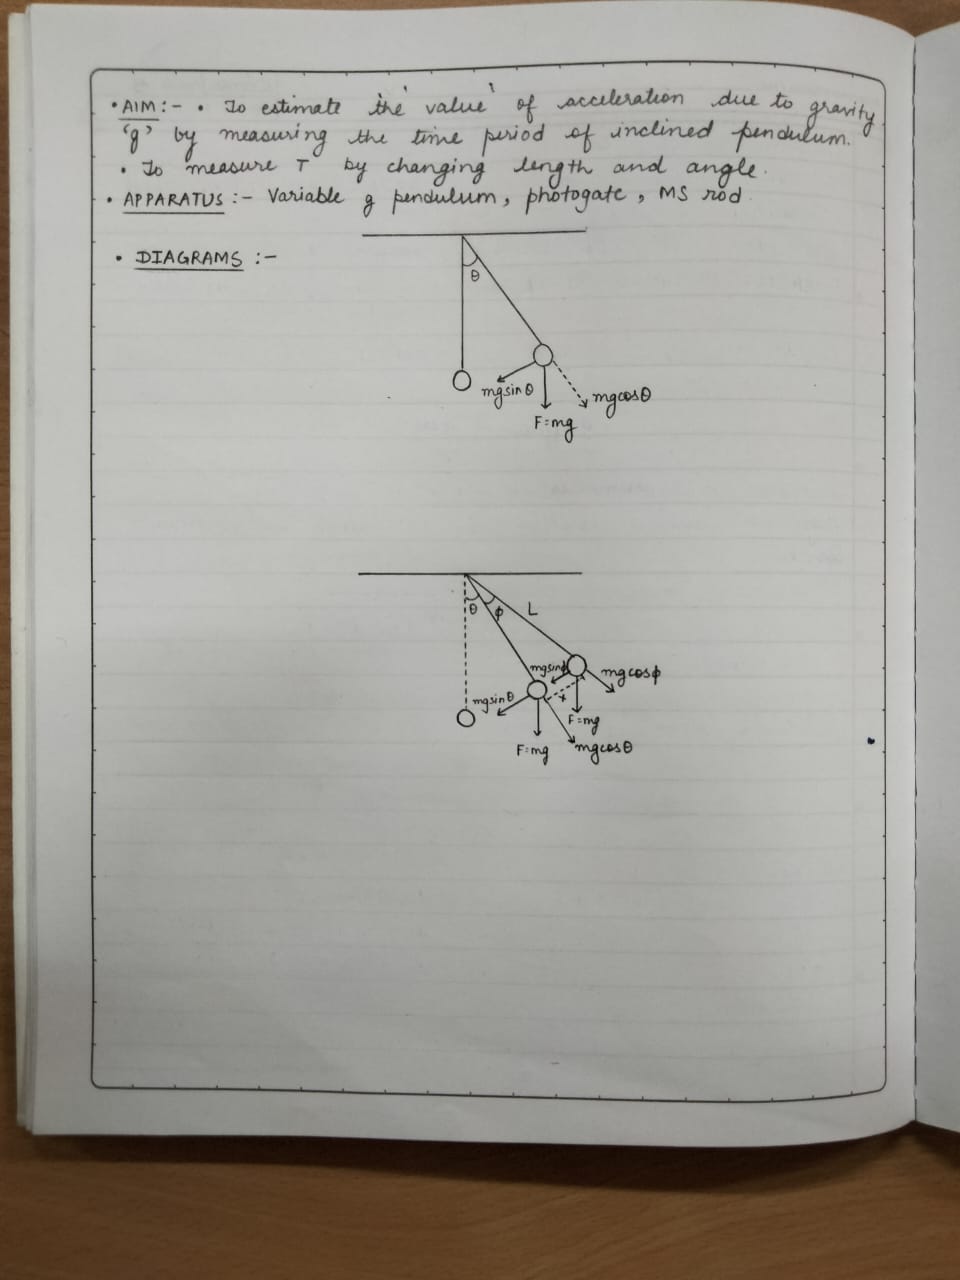 • AIM :- • To estimate the value of acceleration due to gravity
'g' by measuring the time period of inclined pendulum.
• To measure T by changing length and angle.
• APPARATUS :- Variable g pendulum, photogate, MS rod
• DIAGRAMS :-
θ
mgsinθ
mgcosθ
F=mg
θ
φ
L
mgsinφ
mgcosφ
mgsinθ
x
F=mg
F=mg
mgcosθ